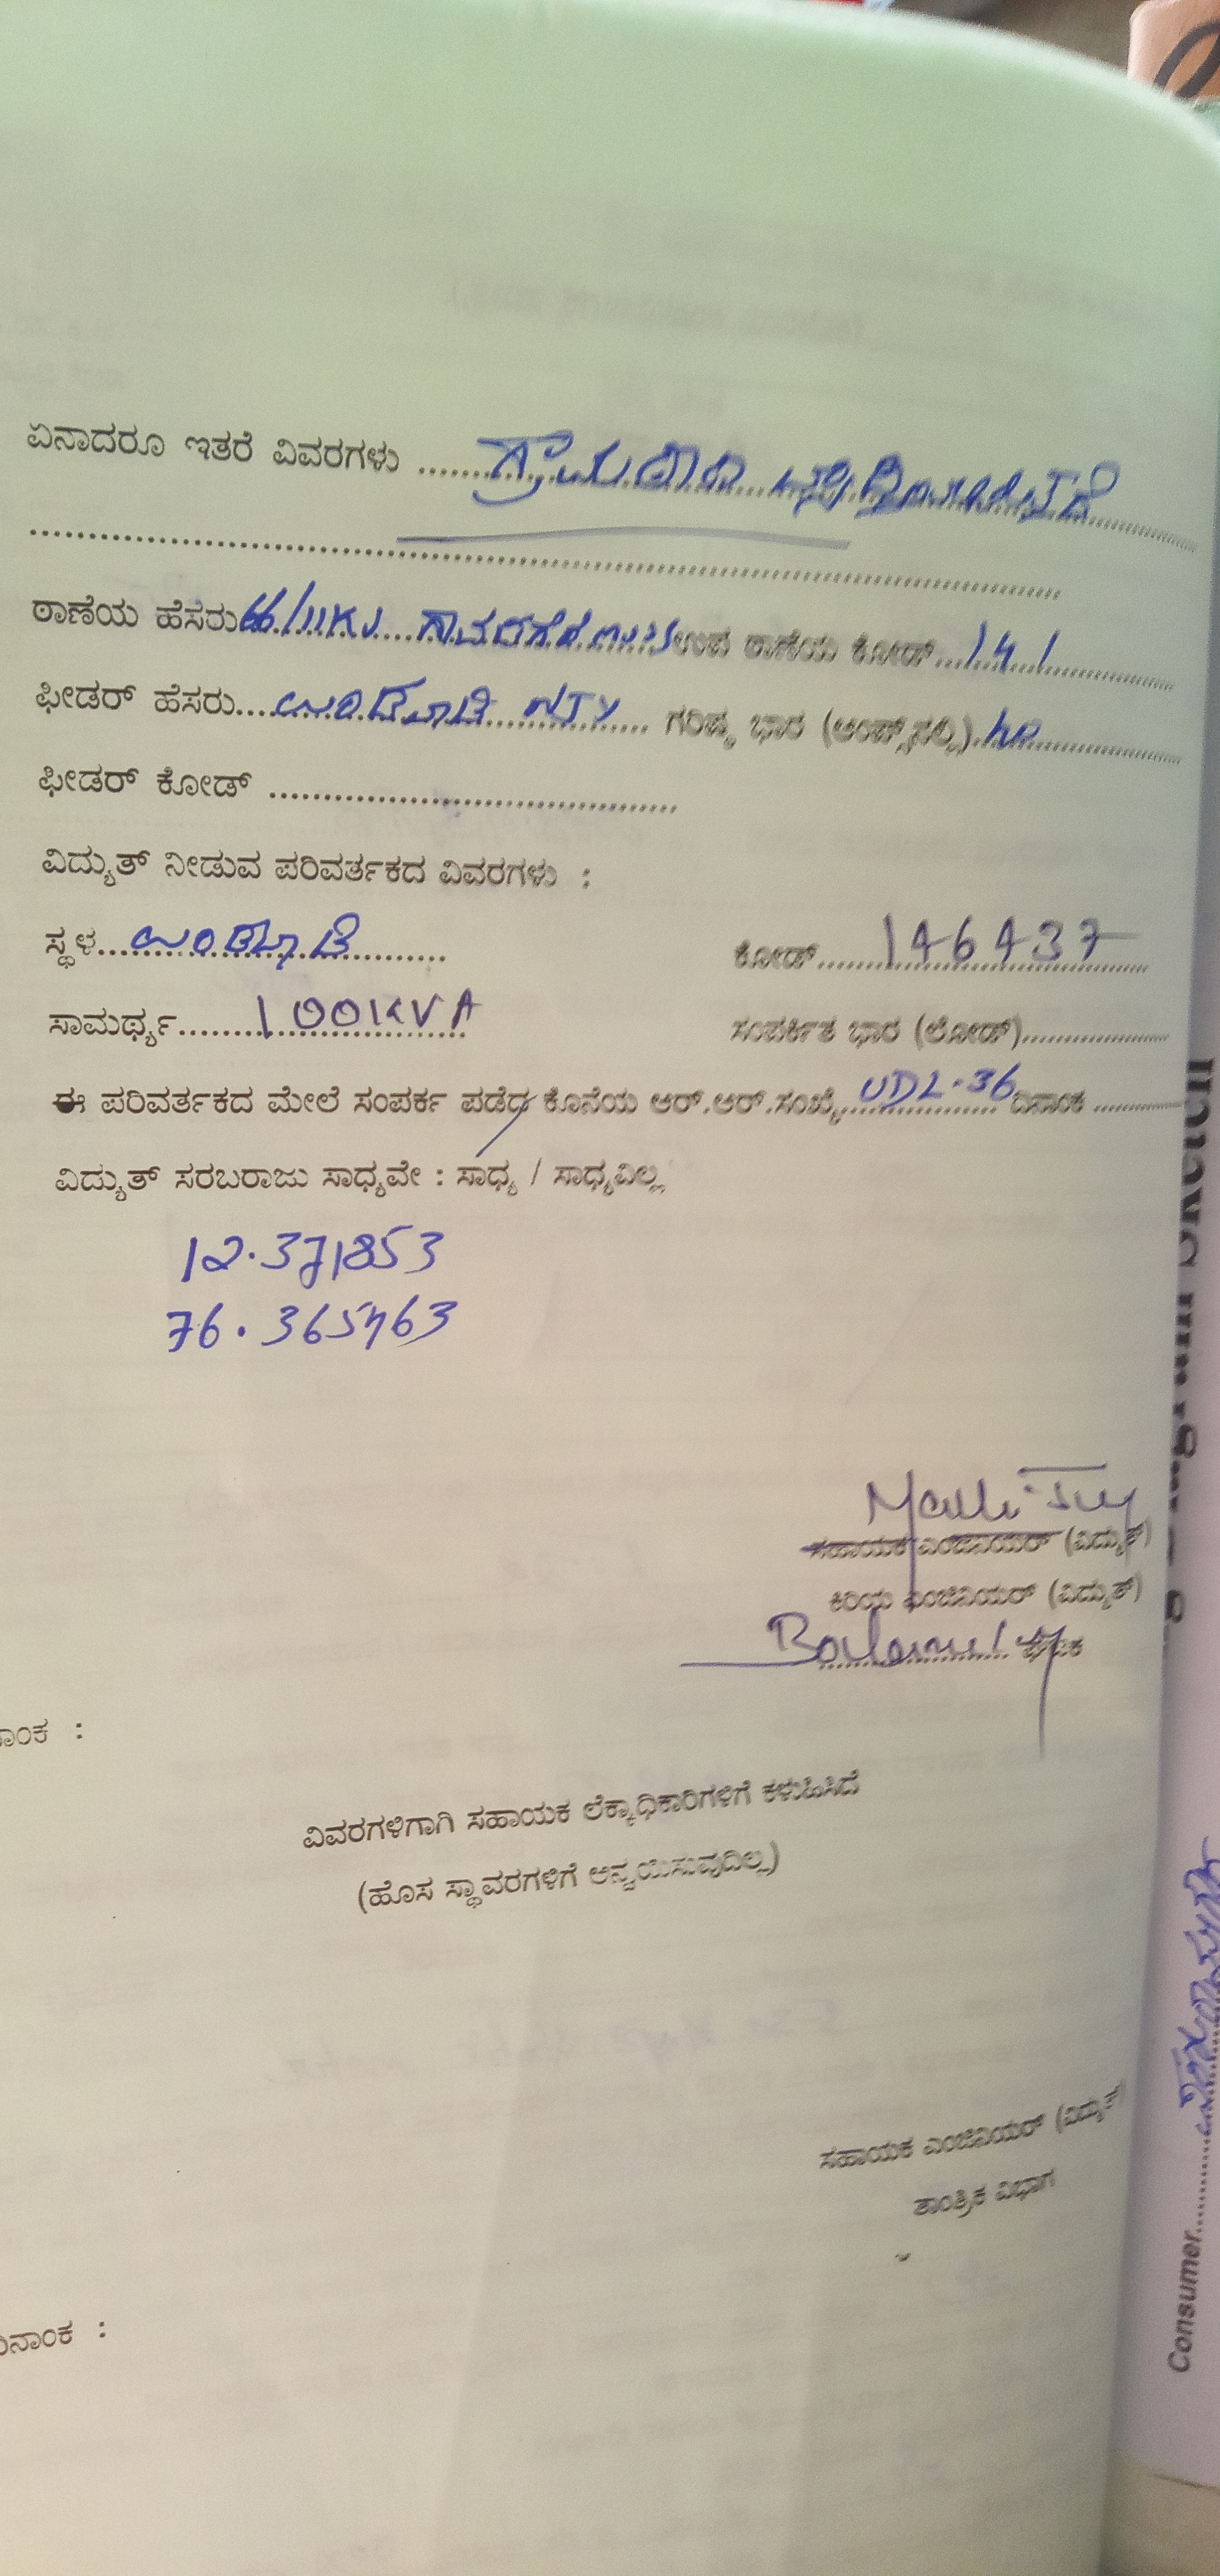 ಏನಾದರೂ ಇತರೆ ವಿವರಗಳು ..........
ಠಾಣೆಯ ಹೆಸರು 66/11KV ಉಪ ಠಾಣೆಯ ಕೋಡ್...141
ಫೀಡರ್ ಹೆಸರು.... NJY ಗರಿಷ್ಠ ಭಾರ (ಆಂಪ್ಸ್‌ನಲ್ಲಿ)
ಫೀಡರ್ ಕೋಡ್ ..........
ವಿದ್ಯುತ್ ನೀಡುವ ಪರಿವರ್ತಕದ ವಿವರಗಳು :
ಸ್ಥಳ.... ಕೋಡ್.....146437
ಸಾಮರ್ಥ್ಯ......100KVA ಸಂಪರ್ಕಿತ ಭಾರ (ಲೋಡ್)..........
ಈ ಪರಿವರ್ತಕದ ಮೇಲೆ ಸಂಪರ್ಕ ಪಡೆದ ಕೊನೆಯ ಆರ್.ಆರ್.ಸಂಖ್ಯೆ UDL-36 ದಿನಾಂಕ ..........
ವಿದ್ಯುತ್ ಸರಬರಾಜು ಸಾಧ್ಯವೇ : ಸಾಧ್ಯ / ಸಾಧ್ಯವಿಲ್ಲ
12.371853
76.365463
ಸಹಾಯಕ ಎಂಜಿನಿಯರ್ (ವಿದ್ಯುತ್)
ಕಿರಿಯ ಎಂಜಿನಿಯರ್ (ವಿದ್ಯುತ್)
ಘಟಕ
ವಿವರಗಳಿಗಾಗಿ ಸಹಾಯಕ ಲೆಕ್ಕಾಧಿಕಾರಿಗಳಿಗೆ ಕಳುಹಿಸಿದೆ
(ಹೊಸ ಸ್ಥಾವರಗಳಿಗೆ ಅನ್ವಯಿಸುವುದಿಲ್ಲ)
ಸಹಾಯಕ ಎಂಜಿನಿಯರ್ (ವಿದ್ಯುತ್)
ತಾಂತ್ರಿಕ ವಿಭಾಗ
Consumer..........